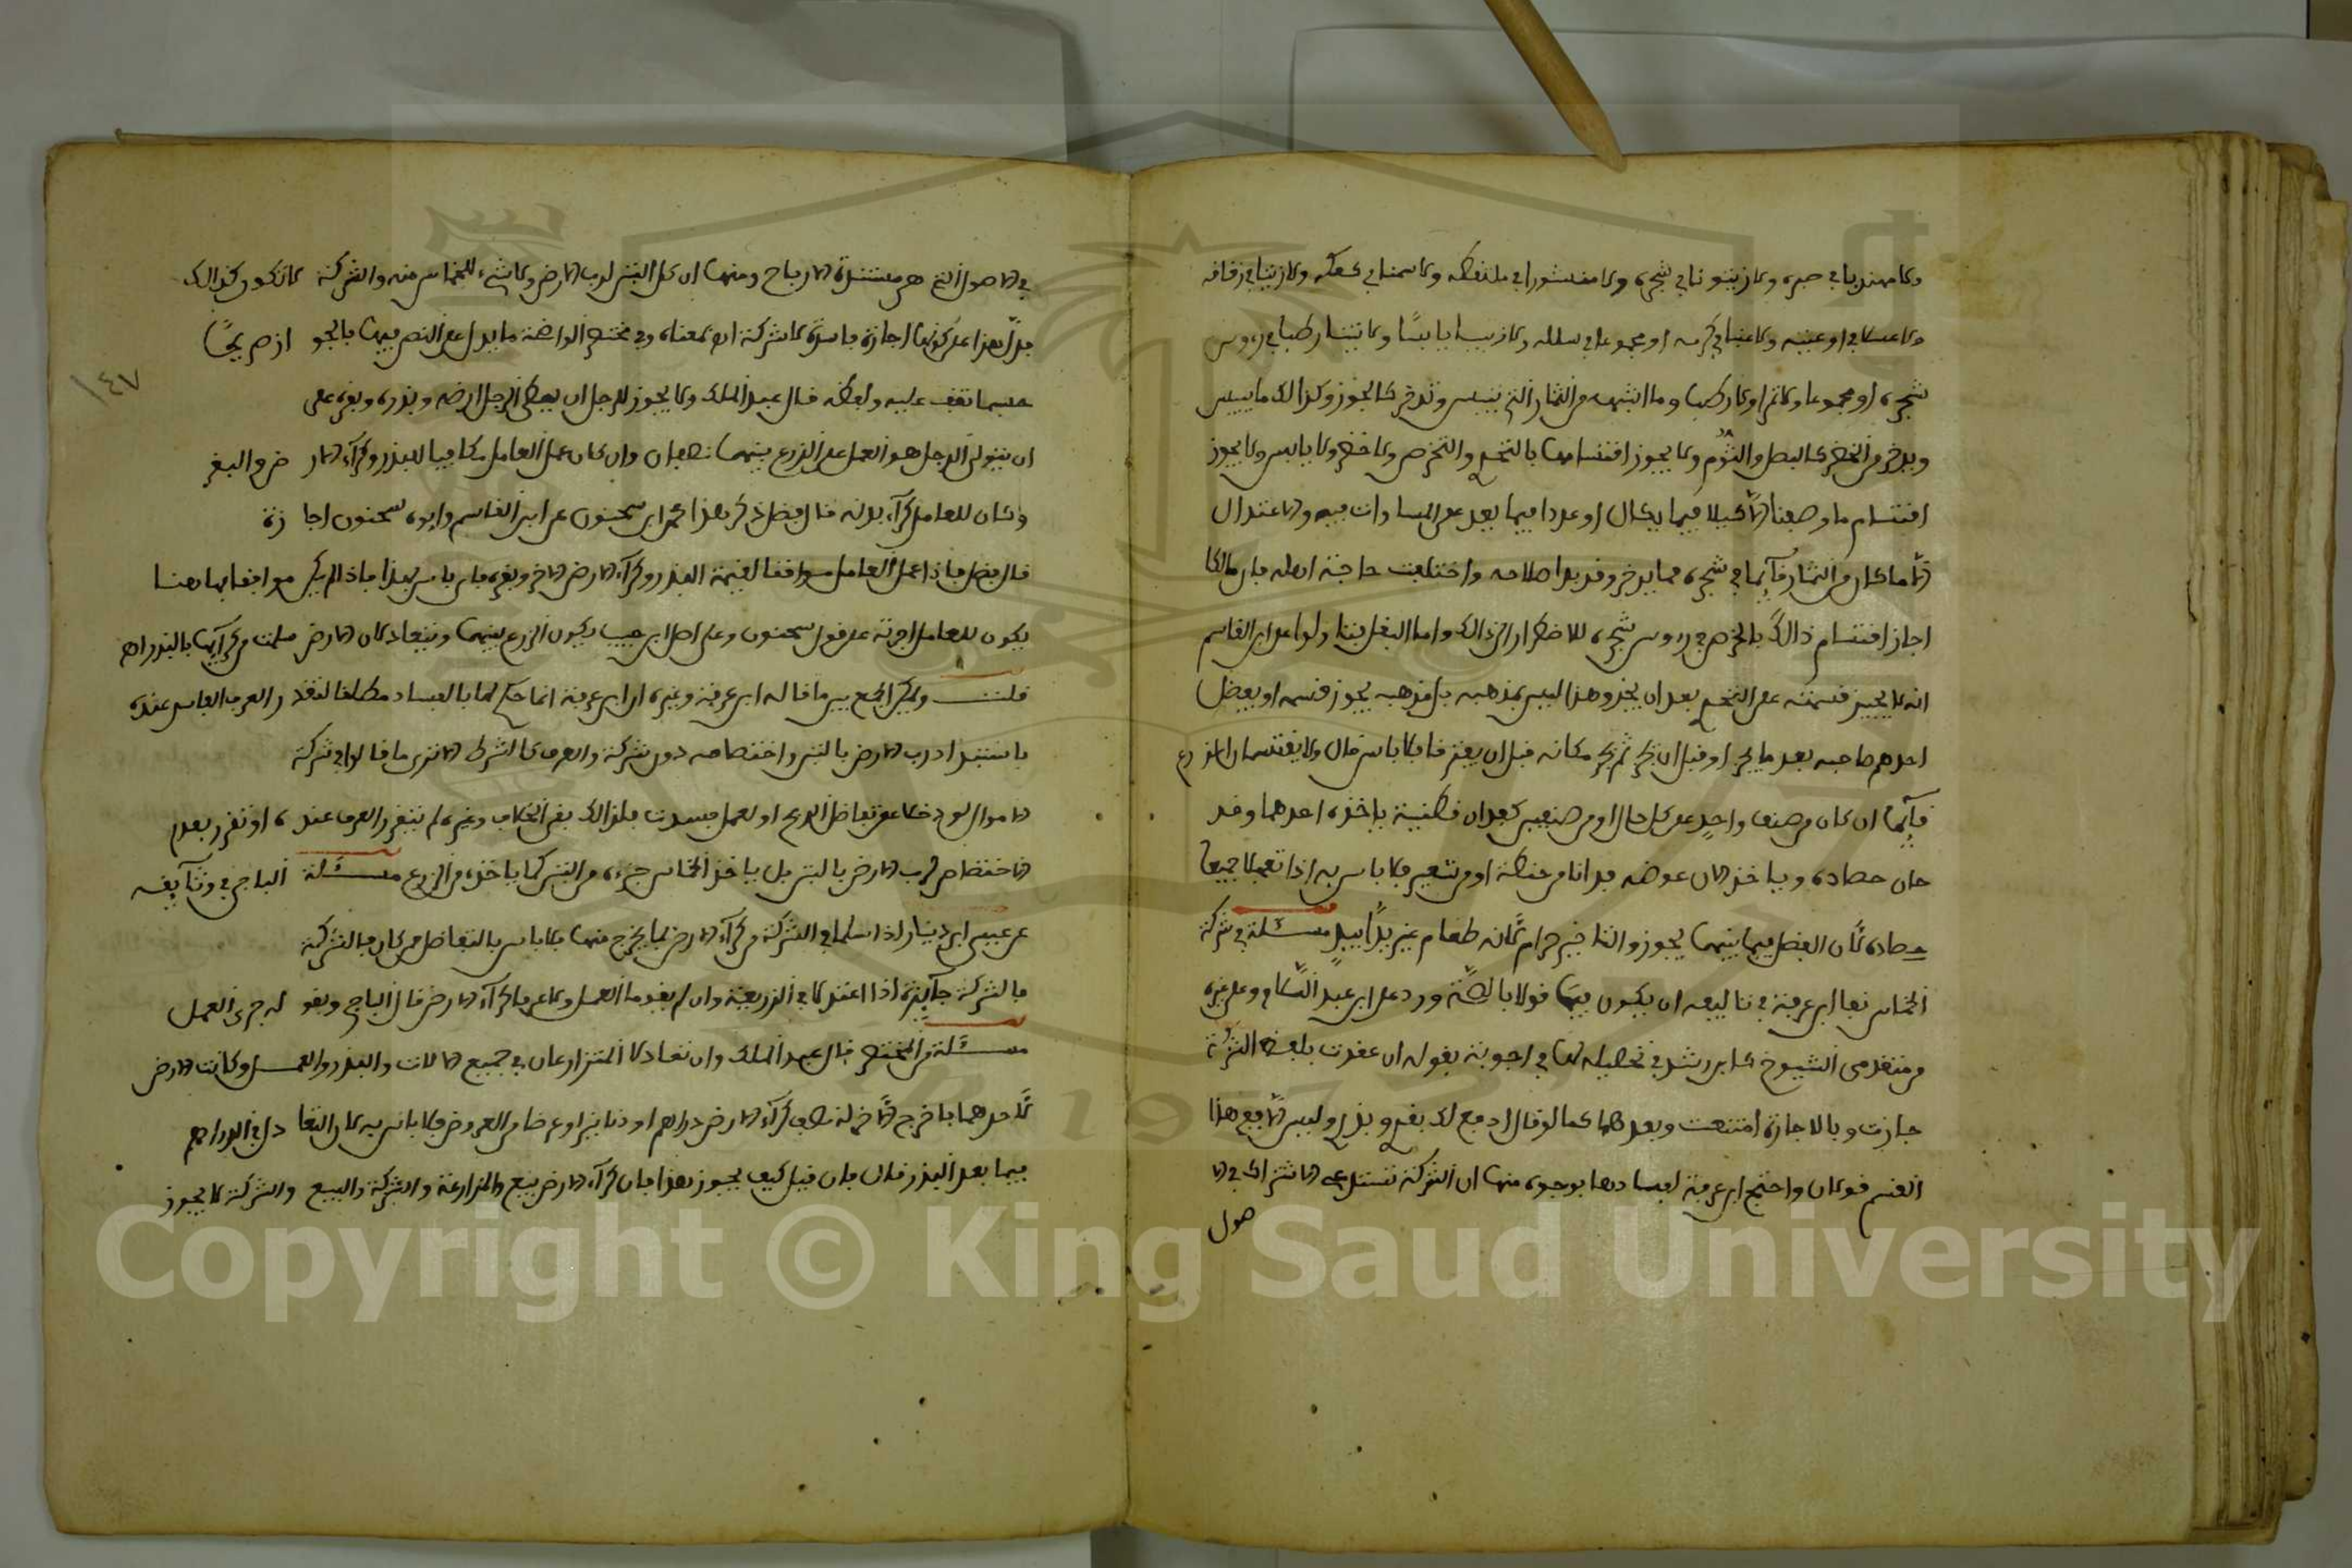 ولا مهذبا في صبره ولا زيتونا في شجره ولا منشورا في ولا سمنا في عكه ولا زيتا في زقاقه
ولا عسلا في اوعيته ولا عنبا في كرمه او مجموعا في سلله ولا زبيبا يابسا ولا تينا رطبا في رءوس
شجره او مجموعا ولا تمرا ولا رطبا وما اشبهه من الثمار التي تيبس وتدخر كالجوز وكذالك ما ييبس
ويدخر من الخضر كالبصل والثوم ولا يجوز اقتسامها بالتحري والتخرص ولا اخضر ولا يابس ولا يجوز
اقتسام ما وصفنا الا كيلا فيما يكال او عددا فيما يعد على المساوات فيه والاعتدال
الا ما كان من الثمار قآئما في شجره مما يدخر وقد بدا صلاحه واختلفت حاجة اهله فإن مالكا
اجاز اقتسام ذالك بالخرص في رءوس شجره للاضطرار الى ذالك واما البقل ابن القاسم
انه لا يجيز قسمته على التحري بعد ان يجذ وهذا ليس بمذهبه بل مذهبه يجوز قسمه او يفضل
احدهم صاحبه بعد ما يجز او قبل ان يجز ثم يجز مكانه قبل ان يفترقا فلا باس قال ولا يقتسمان الزرع
قآئما ان كان من صنف واحد على كل حال او من صنفين كفدان قطنية ياخذه احدهما وقد
حان حصاده وياخذ الاخر عوضه فدانا من حنطة او من شعير فلا باس به اذا تعجلا جميعا
حصاده لأن الفضل فيما بينهما يجوز والتاخير حرام لأنه طعام غير يدا بيد مسئلة في شركة
الخماس نفا ابن عرفة في تاليفه ان يكون فيها قولا بالصحة ورد على ابن عبد السلام وعلى غيره
من متقدمي الشيوخ كابن رشد في تحصيله لها في اجوبته بقوله ان عقدت بلفظ الشركة
جازت وبالاجارة امتنعت وبعدهما كما لو قال ادفع لك بقري وبذري وليس الا فيع هذا
القسم قولان واحتج ابن عرفة لفسادها بوجوه منها ان الشركة تستدعي الاشتراك في الا
صول
في الاصول التي هي مستندة الارباح ومنها ان كل التبن لرب الارض ولا شيء للخماس منه والشركة لا تكون كذالك
فدل هذا على كونها اجارة فاسدة لا شركة اه بمعناه وفي مختصر الواضحة ما يدل على النص فيها بالجواز صريحا
حسبما تقف عليه ولفظه قال عبد الملك ولا يجوز للرجل ان يعطي الرجل ارضه وبذره وبقره على
ان يتولى الرجل هو العمل على الزرع بينهما نصفان وان كان عمل العامل مكافيا للبذر وكرآء الارض والبقر
وكان للعامل كرآء بدنه قال فضل ذكر هذا محمد ابن سحنون عن ابن القاسم وابوه سحنون اجازه
قال فضل فإذا عمل العامل موافقا لقيمة البذر وكرآء الارض وبقره فلا باس بهذا فاذا لم يكن موافقا بما هنا
يكون للعامل اجرته على قول سحنون وعلى اصل ابن حبيب يكون الزرع بينهما ويتعادلان الارض سلمت من كرآئها بالبذر اه
قلت ويمكن الجمع بين ما قاله ابن عرفة وغيره ان ابن عرفة انما حكم لها بالفساد مطلقا لتقرر العرف الفاسد عنده
باستبداد رب الارض بالتبن واختصاصه دون شركة والعرف كالشرط الا ترى ما قالوا في شركة
الاموال لو دخلا على تفاضل الربح او العمل فسدت فلذالك بقي الخلاف وغيره لم يتقرر العرف عنده او تقرر بعدم
اختصاص رب الارض بالتبن بل ياخذ الخماس جزءه من التبن كما ياخذه من الزرع مسئلة الباجي في وثآئقه
عن عيسى ابن دينار اذا سلما في الشركة من كرآء الارض بما يخرج منها فلا باس بالتفاضل من كان فالشركة
فالشركة جآئزة اذا اعتدلا في الزريعة وان لم يقوما العمل ولا عرفا كرآء الارض قال الباجي وبقوله جرى العمل
مسئلة من المختصر قال عبد الملك وان تعادلا المتزارعان في جميع الالات والبذر والعمل وكانت الارض
لأحدهما فاخرج الآخر له نصف كرآء الارض دراهم او دنانير او عرضا من العروض فلا باس به كان التعادل في الدراهم
فيما بعد البذر قال فإن قيل كيف يجوز هذا فإن كرآء الارض بيع والمزارعة والشركة والبيع والشركة لا يجوز
١٤٧
Copyright © King Saud University
1957